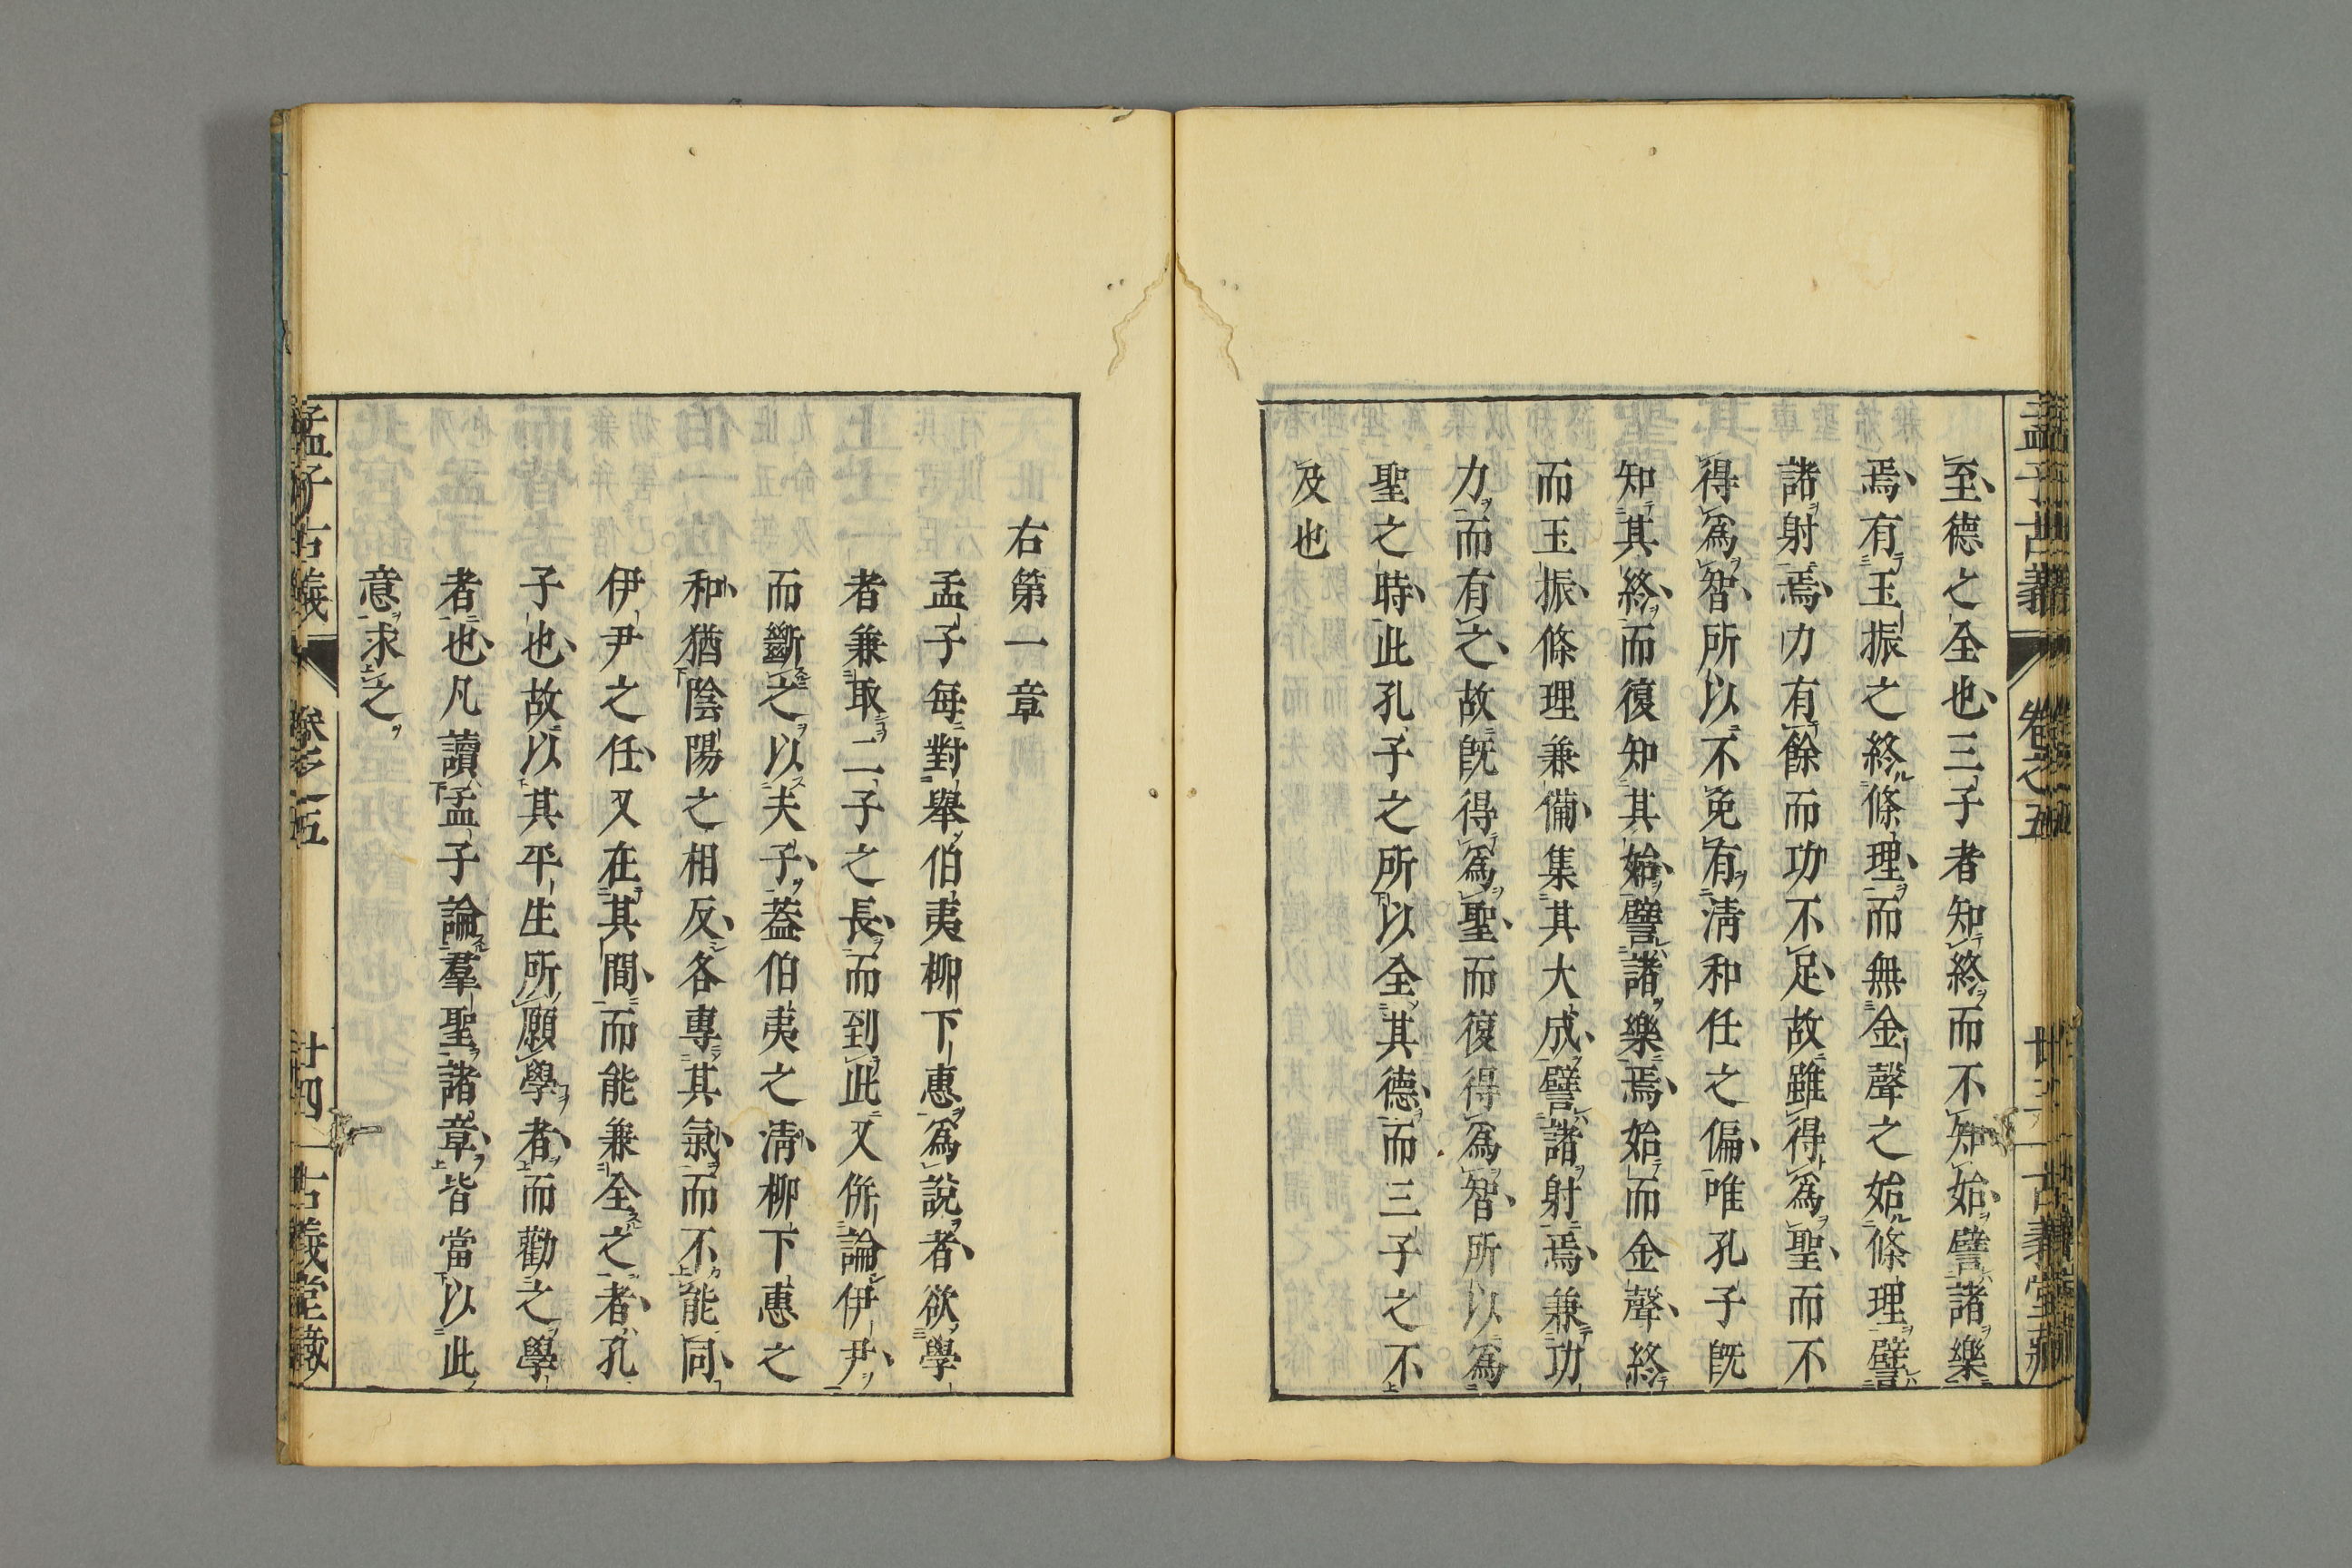 至德之全也三子者知終而不知始譬諸樂
焉有玉振之終條理而無金聲之始條理譬
諸射焉力有餘而功不足故雖得爲聖而不
得爲智所以不免有淸和任之偏唯孔子旣
知其終而復知其始譬諸樂焉始而金聲終
而玉振條理兼備集其大成譬諸射焉兼功
力而有之故旣得爲聖而復得爲智所以爲
聖之時此孔子之所以全其德而三子之不
及也
右第一章
孟子每對舉伯夷柳下惠爲說者欲學
者兼取二子之長而到此又併論伊尹
而斷之以夫子葢伯夷之淸柳下惠之
和猶陰陽之相反各專其氣而不能同
伊尹之任又在其間而能兼全之者孔
子也故以其平生所願學者而勸之學
者也凡讀孟子論羣聖諸章皆當以此
意求之
孟子古義
卷之五
廿四
古義堂藏